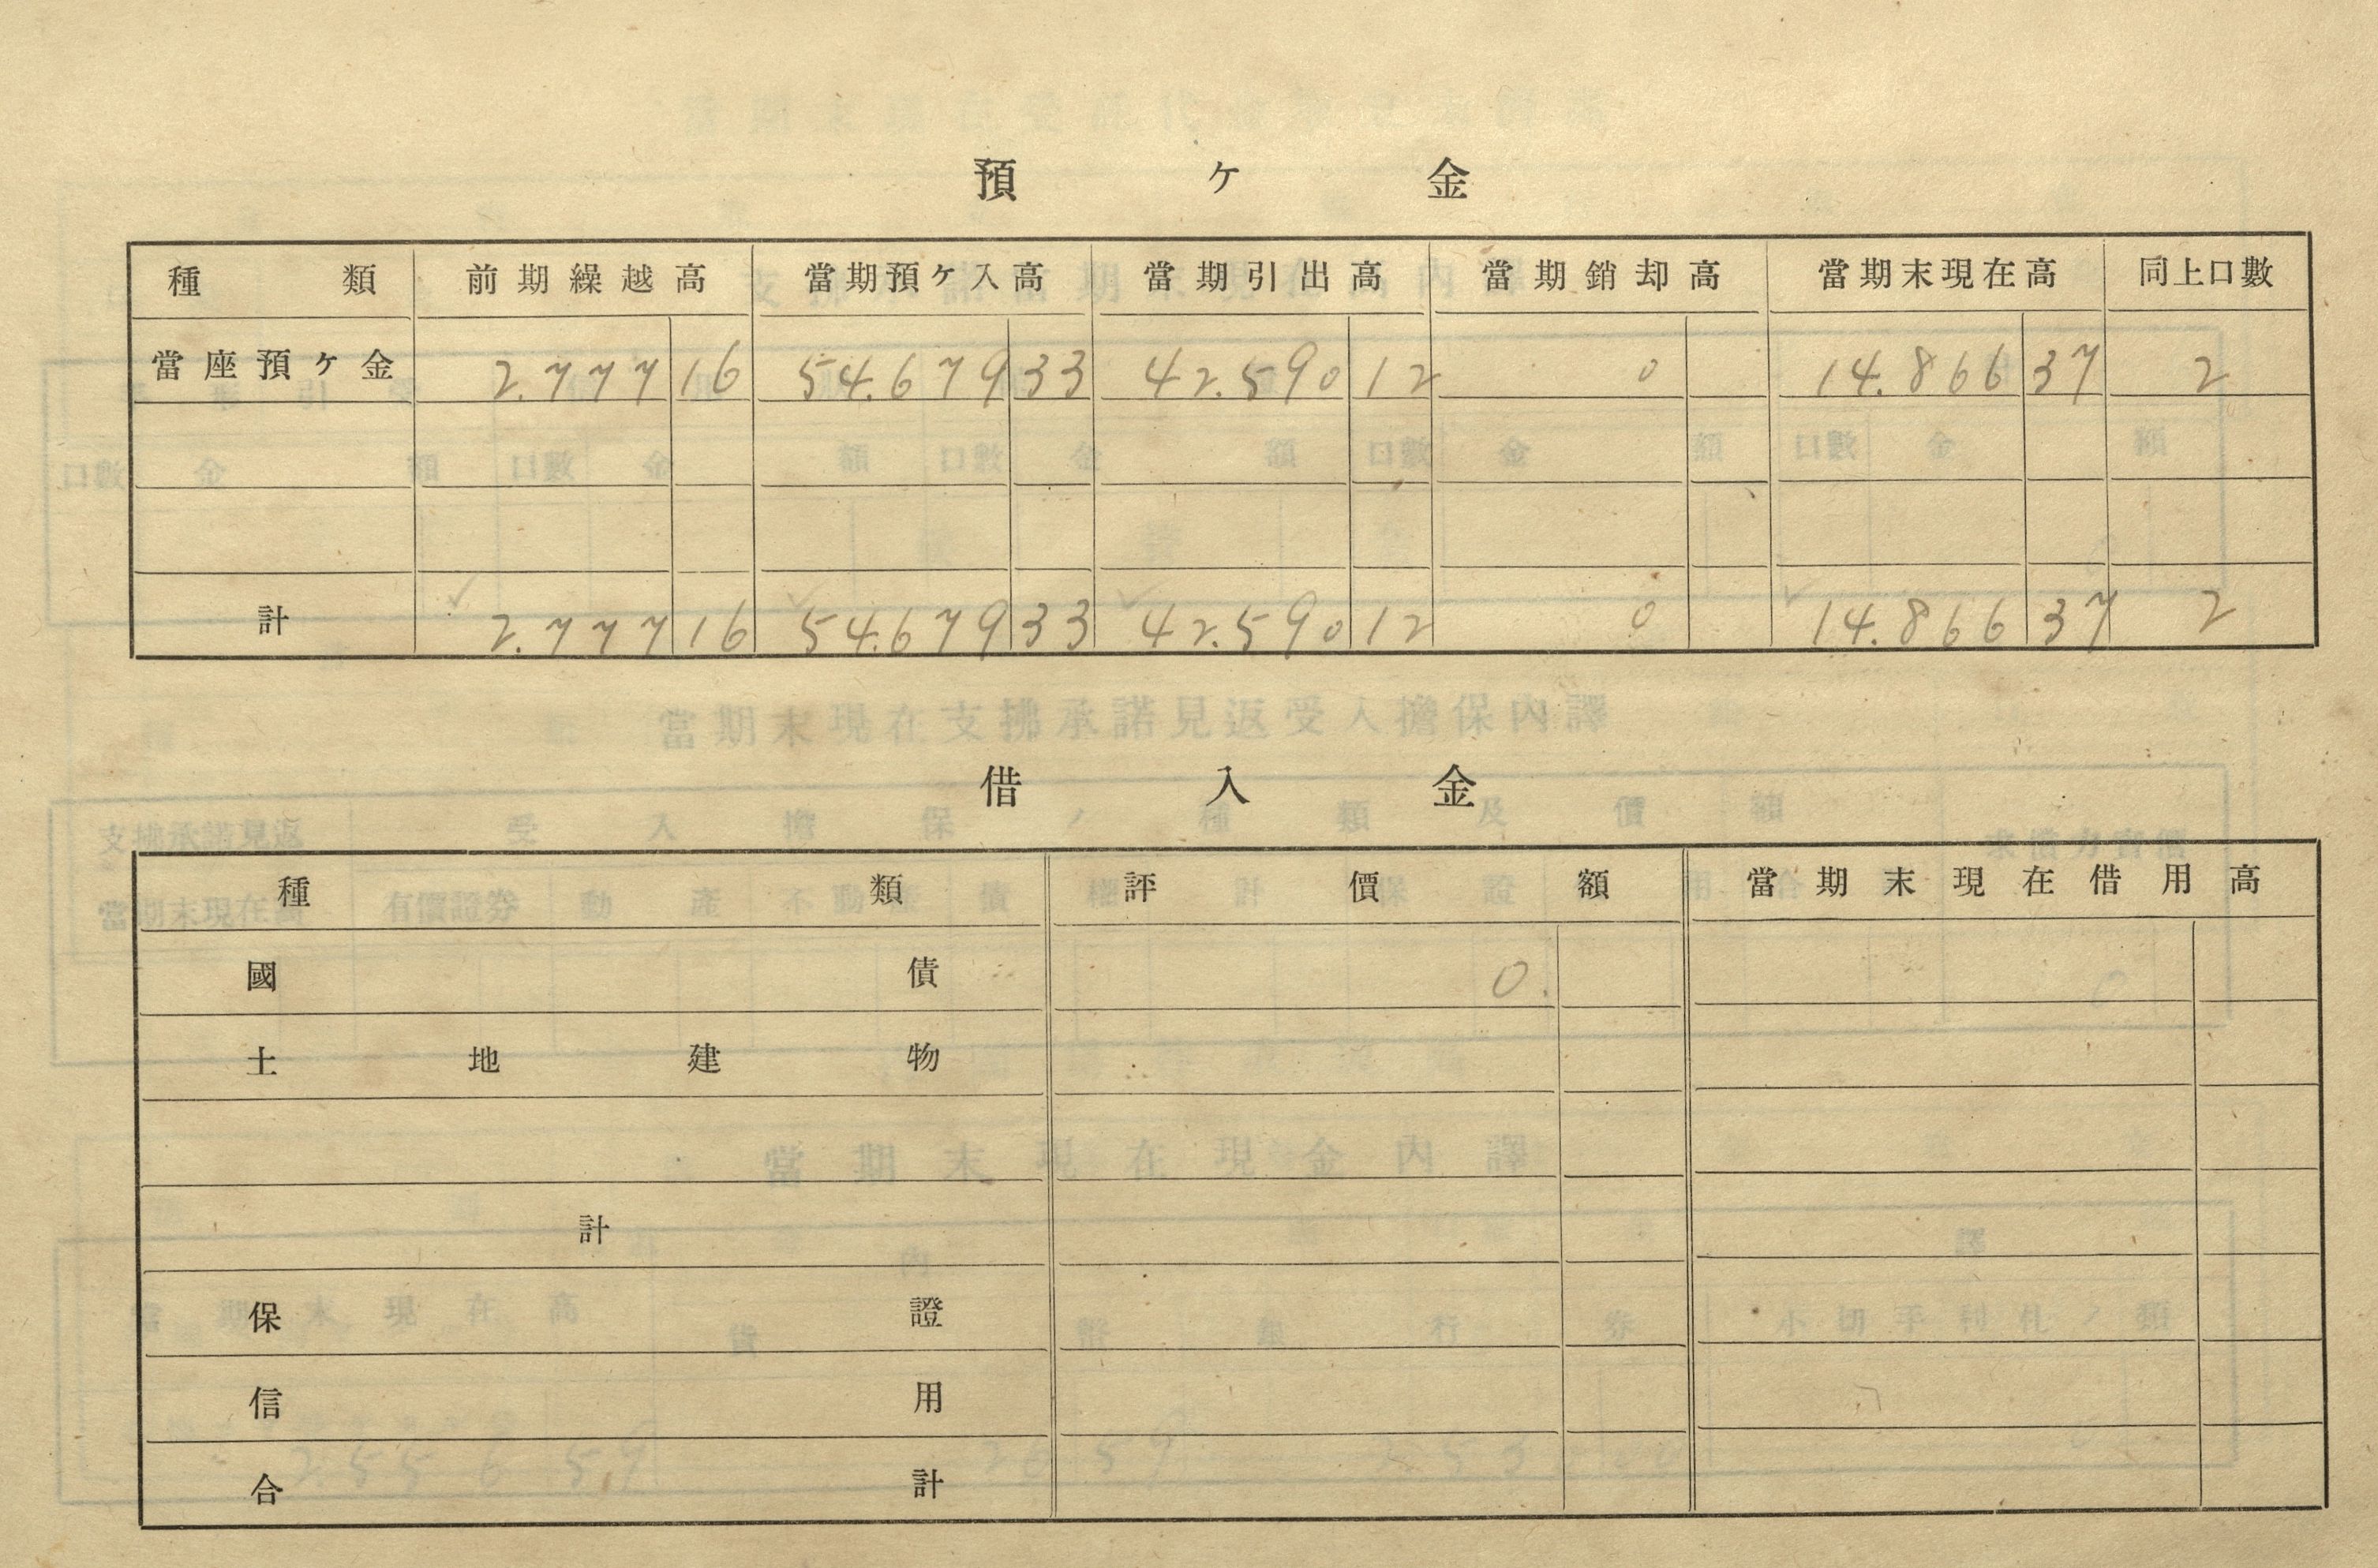 預ケ金
種類 前期繰越高 當期預ケ入高 當期引出高 當期銷却高 當期末現在高 同上口數
當座預ケ金 2.777 16 54.679 33 42.590 12 0 14.866 37 2
計 2.777 16 54.679 33 42.590 12 0 14.866 37 2
借入金
種類 評價額 當期末現在借用高
國債 0.
土地建物
計
保證
信用
合計